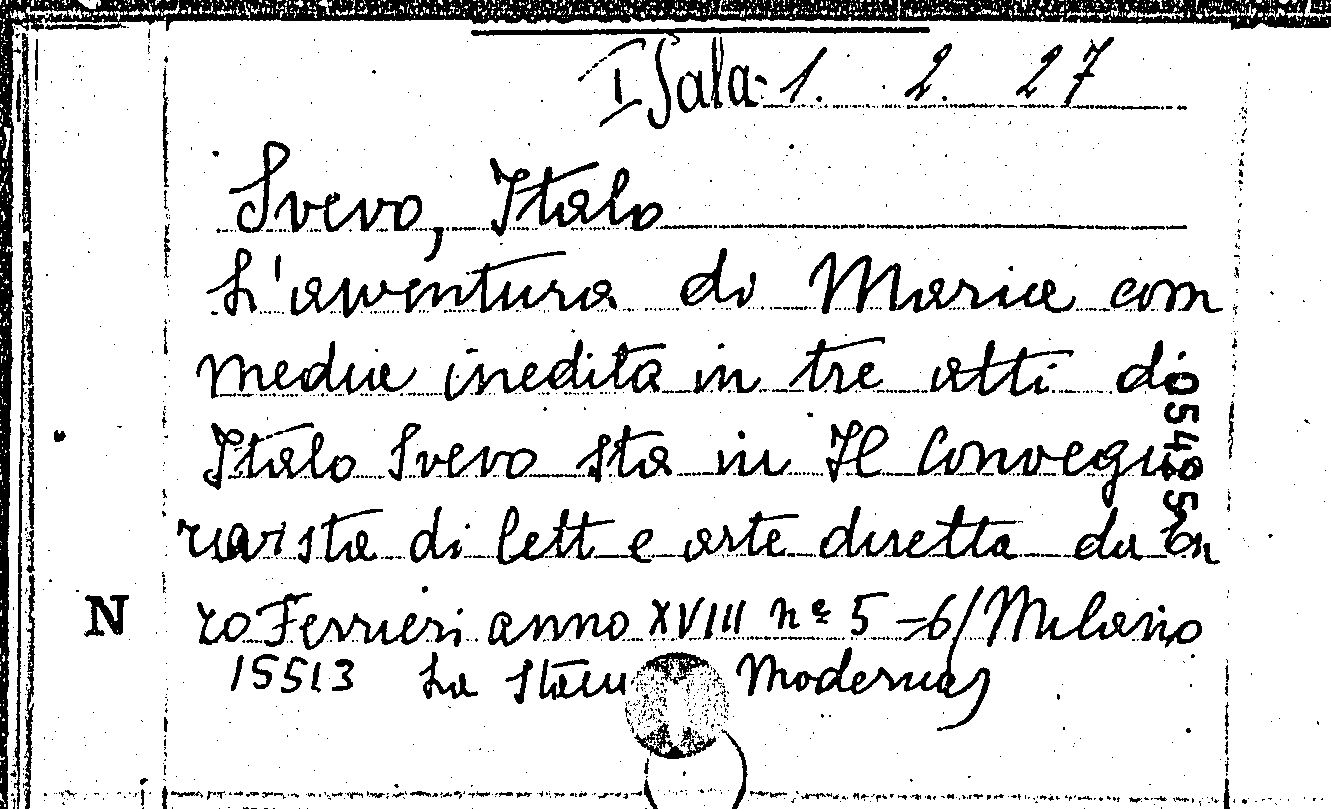 I Sala 1. 2. 27
Svevo, Italo
L'avventura di Maria com
media inedita in tre atti di
Italo Svevo sta in Il Convegno
rivista di lett e arte diretta da En
zo Ferrieri anno XVIII nº 5-6 (Milano
N
15513 La Moderna)
054255